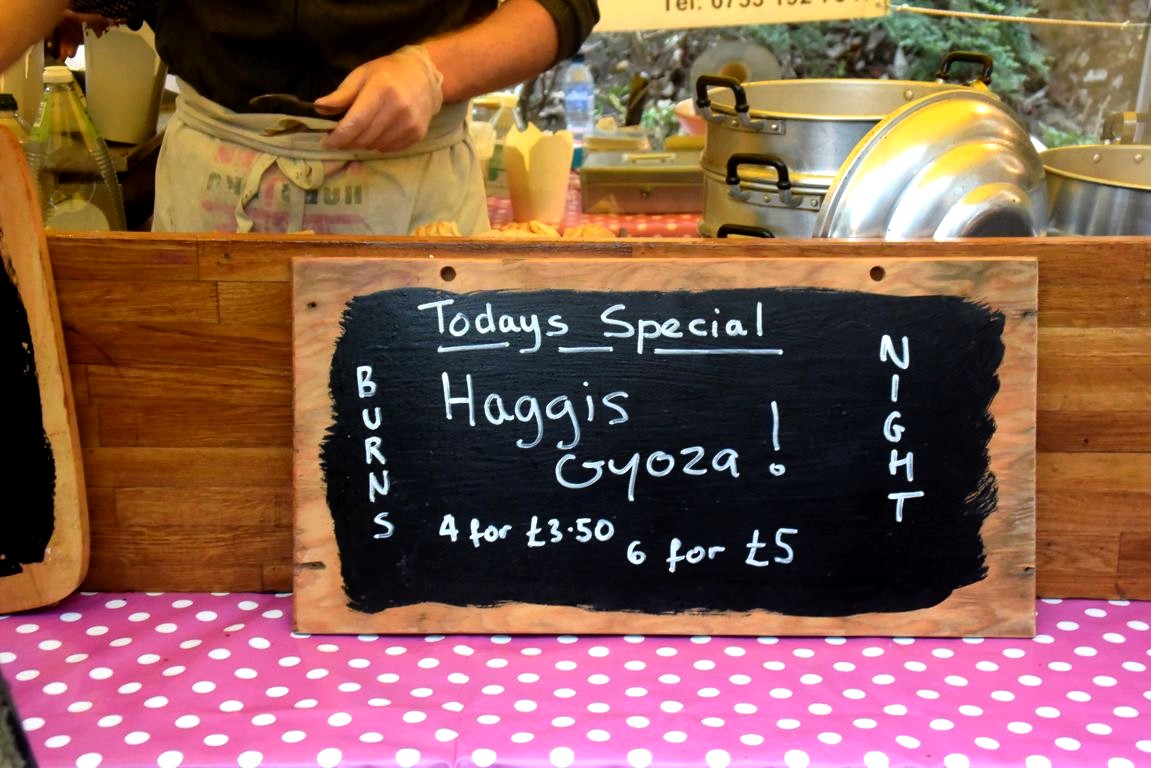 Tel:
Todays Special
BURNS
Haggis
Gyoza !
NIGHT
4 for £3.50
6 for £5